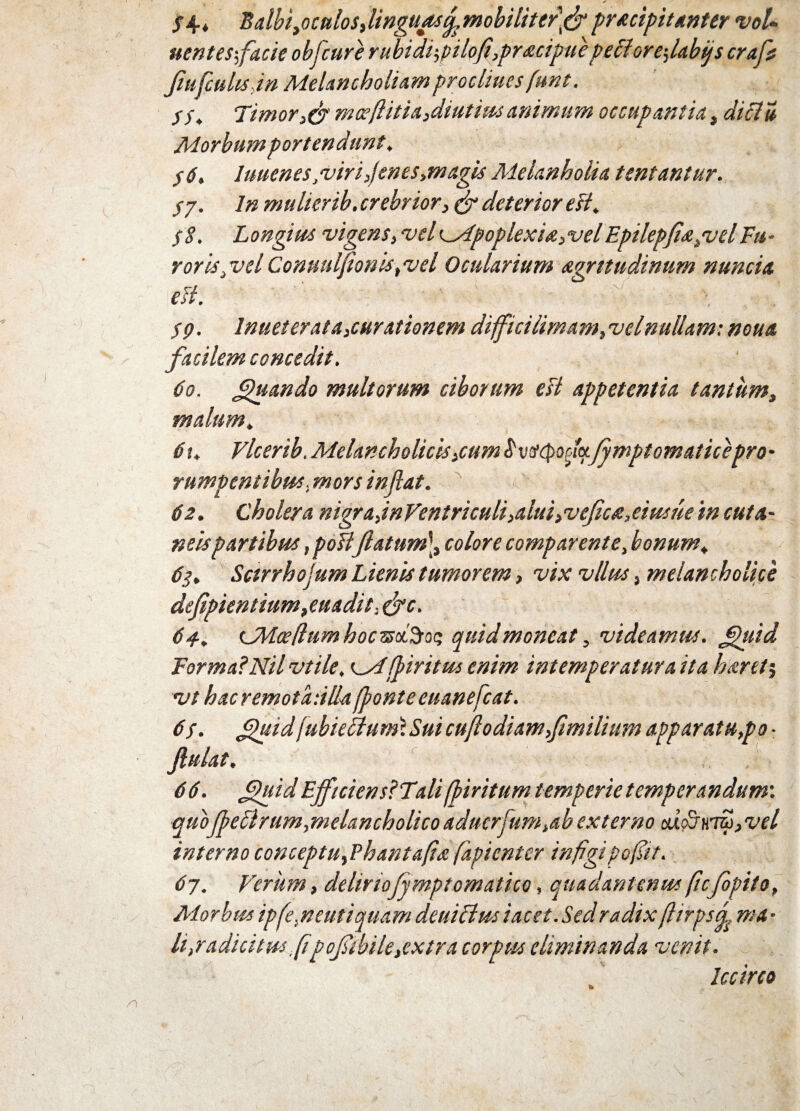 54. Balbi,oculos,linguasq́; mobiliter,& præcipitanter vol-
uentes;facie obscurè rubidi;pilosi,præcipuè pectore;labijs crassi-
usculis,in Melancholiam procliues sunt.
55. Timor,& mœstitia,diutius animum occupantia, dictū
Morbum portendunt.
56. Iuuenes,viri,senes,magis Melanholia tentantur.
57. In mulierib.crebrior, & deterior est.
58. Longius vigens, vel Apoplexiæ,vel Epilepsiæ,vel Fu-
roris,vel Conuulsionis,vel Ocularium ægritudinum nuncia
est.
59. Inueterata,curationem difficilimam,vel nullam: noua
facilem concedit.
60. Quando multorum ciborum est appetentia tantùm,
malum.
61. Vlcerib. Melancholicis,cum δυσφορίᾳ symptomaticè pro-
rumpentibus, mors instat.
62. Cholera nigra,in Ventriculi,alui,vesicæ,eiusúe in cuta-
neis partibus, post flatum, colore comparente, bonum.
63. Scirrhosum Lienis tumorem, vix vllus, melancholicè
desipientium,euadit,&c.
64. Mœstum hoc πάθος quid moneat, videamus. Quid
Forma? Nil vtile. Aspiritus enim intemperatura ita hæret;
vt hac remotâ:illa sponte euanescat.
65. Quid subiectum? Sui custodiam,similium apparatu,po-
stulat.
66. Quid Efficiens? Tali spiritum temperie temperandum:
quò spectrum,melancholico aduersum,ab externo αἰσθητῶ, vel
interno conceptu,Phantasiæ sapienter infigi possit.
67. Verùm, delirio symptomatico, quadantenus sic sopito,
Morbus ipse,neutiquam deuictus iacet. Sed radix stirpsq́; ma-
li,radicitus,si possibile,extra corpus eliminanda venit.
Iccirco